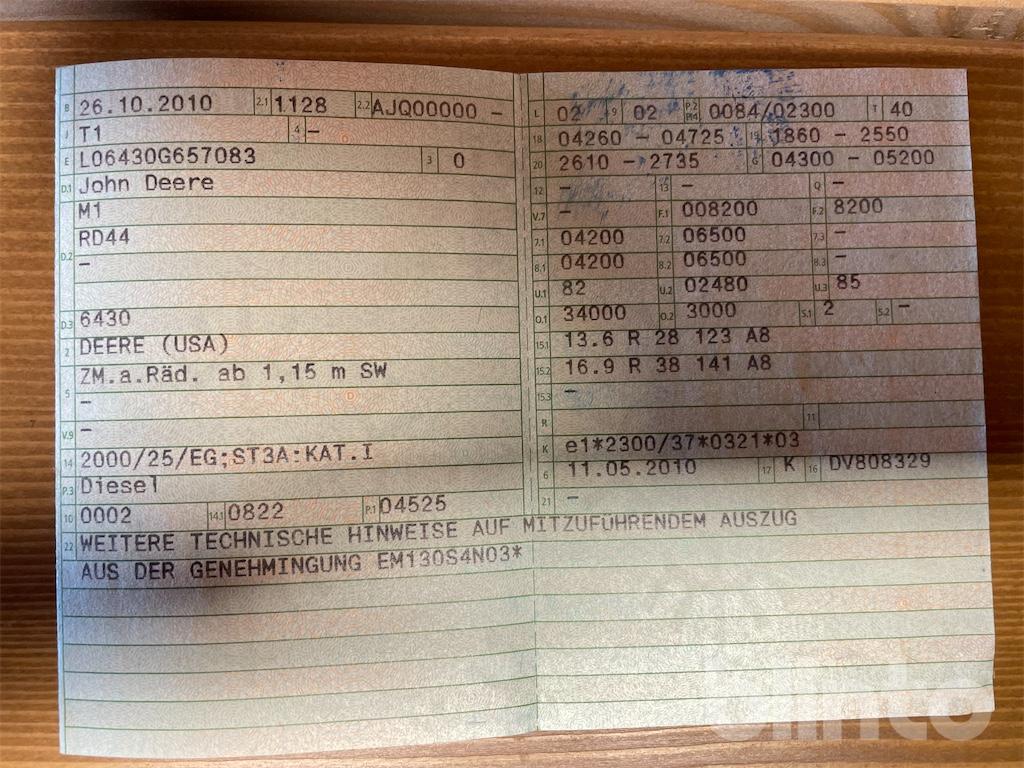 B 26.10.2010 2.1 1128 2.2 AJQ00000 -
J T1 4 -
E L06430G657083 3 0
D.1 John Deere
M1
D.2 RD44
-
D.3 6430
2 DEERE (USA)
5 ZM.a.Räd. ab 1,15 m SW
-
V.9 -
14 2000/25/EG;ST3A:KAT.I
P.3 Diesel
10 0002 14.1 0822 P.1 04525
22 WEITERE TECHNISCHE HINWEISE AUF MITZUFÜHRENDEM AUSZUG
AUS DER GENEHMINGUNG EM130S4N03*
L 02 9 02 P.2 P.4 0084/02300 T 40
18 04260 - 04725 19 1860 - 2550
20 2610 - 2735 G 04300 - 05200
12 - 13 - Q -
V.7 - F.1 008200 F.2 8200
7.1 04200 7.2 06500 7.3 -
8.1 04200 8.2 06500 8.3 -
U.1 82 U.2 02480 U.3 85
O.1 34000 O.2 3000 S.1 2 S.2 -
15.1 13.6 R 28 123 A8
15.2 16.9 R 38 141 A8
15.3 -
R - 11
K e1*2300/37*0321*03
6 11.05.2010 17 K 16 DV808329
21 -
blinto